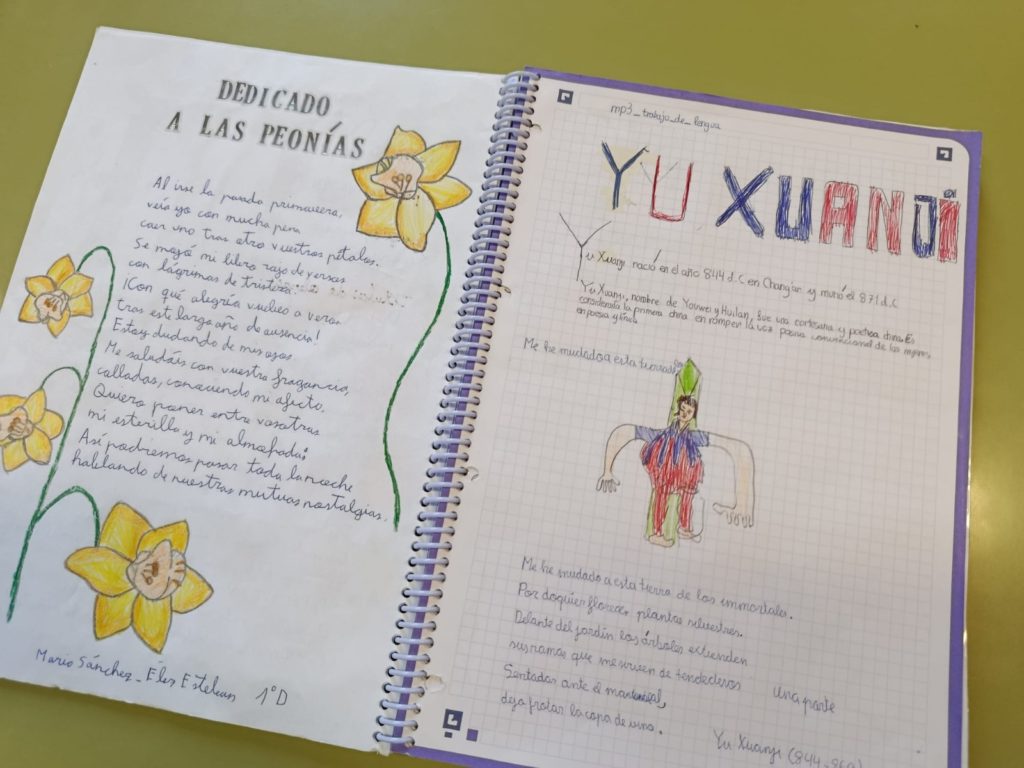 DEDICADO
A LAS PEONÍAS
Al irse la pasada primavera,
veía yo con mucha pena
caer uno tras otro vuestros pétalos.
Se mojó mi libro rojo de versos
con lágrimas de tristeza.
¡Con qué alegría vuelvo a veros
tras este largo año de ausencia!
Estoy dudando de mis ojos
Me saludáis con vuestra fragancia,
calladas, conociendo mi afecto.
Quiero poner entre vosotras
mi esterilla y mi almohada:
Así podremos pasar toda la noche
hablando de nuestras mutuas nostalgias.
Mario Sánchez - Esteban 1ºD
mp3_trabajo_de_lengua
YU XUANJI
Yu Xuanji nació en el año 844 d.C en Chang'an y murió el 871 d.C
Yu Xuanji, nombre de Youwei y Huilan, fue una cortesana y poetisa china. Es
considerada la primera china en romper la voz pasiva convencional de las mujeres
en poesía china
Me he mudado a esta
Me he mudado a esta tierra de los inmortales.
Por doquier florecen plantas silvestres.
Delante del jardín los árboles extienden
sus ramas que me sirven de tendederos
Sentados ante el manantial,
dejo flotar la copa de vino.
Una parte
Yu Xuanji (844-869)